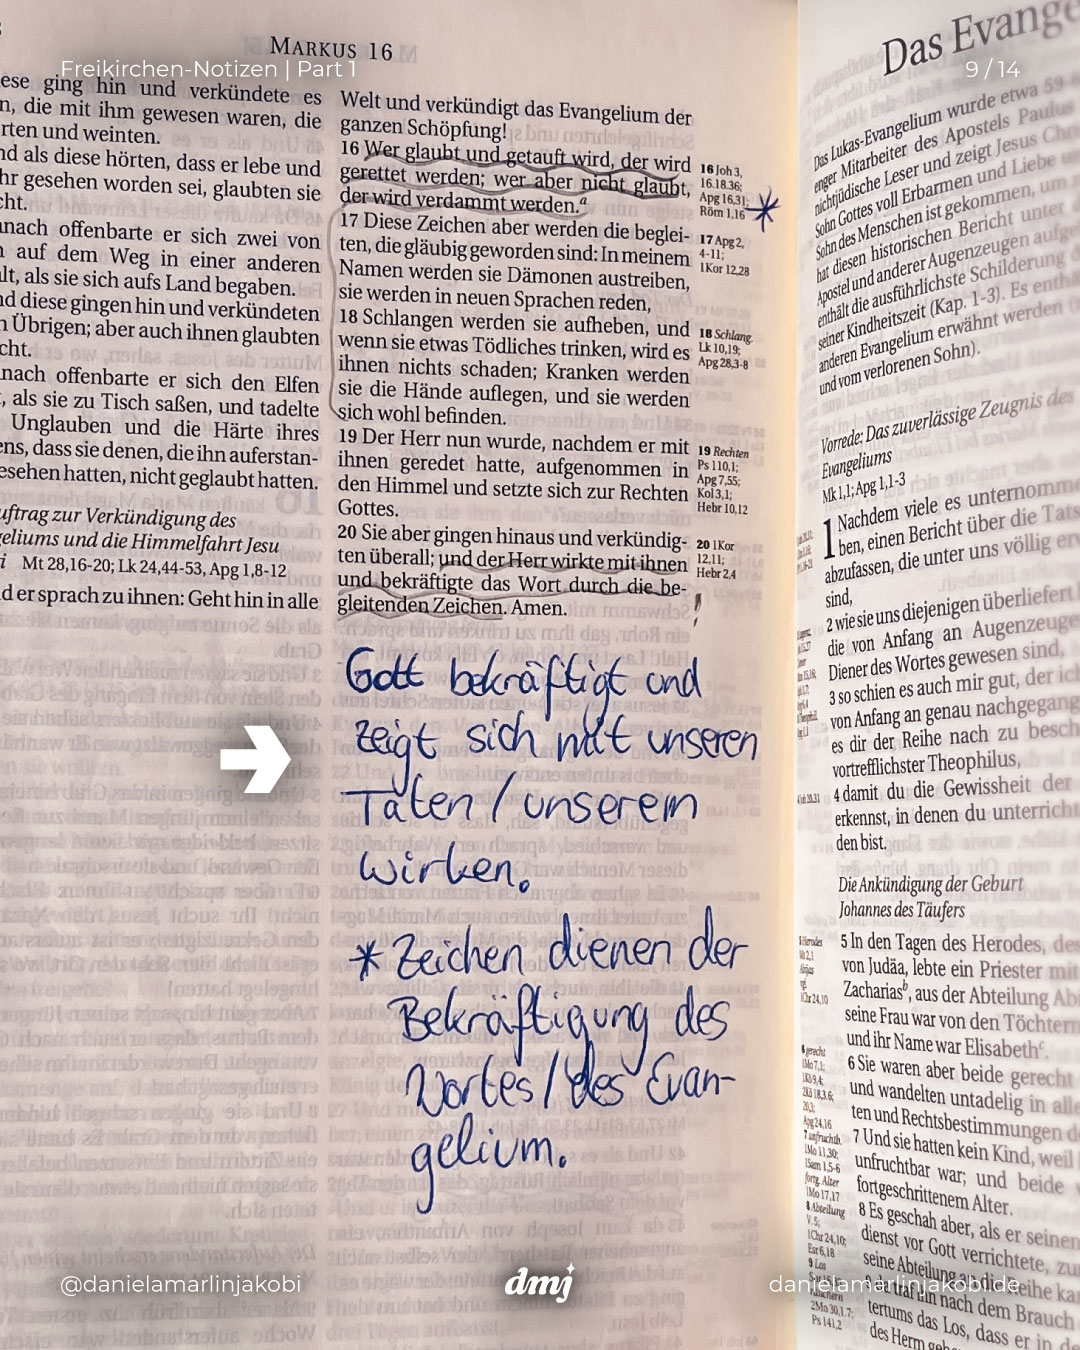 Freikirchen-Notizen | Part 1
9 / 14
MARKUS 16
ese ging hin und verkündete es
n, die mit ihm gewesen waren, die
rten und weinten.
nd als diese hörten, dass er lebe und
hr gesehen worden sei, glaubten sie
cht.
nach offenbarte er sich zwei von
auf dem Weg in einer anderen
lt, als sie sich aufs Land begaben.
nd diese gingen hin und verkündeten
n Übrigen; aber auch ihnen glaubten
cht.
nach offenbarte er sich den Elfen
, als sie zu Tisch saßen, und tadelte
Unglauben und die Härte ihres
ens, dass sie denen, die ihn auferstan-
esehen hatten, nicht geglaubt hatten.
uftrag zur Verkündigung des
geliums und die Himmelfahrt Jesu
i Mt 28,16-20; Lk 24,44-53, Apg 1,8-12
d er sprach zu ihnen: Geht hin in alle
Welt und verkündigt das Evangelium der
ganzen Schöpfung!
16 Wer glaubt und getauft wird, der wird
gerettet werden; wer aber nicht glaubt,
der wird verdammt werden.a
17 Diese Zeichen aber werden die beglei-
ten, die gläubig geworden sind: In meinem
Namen werden sie Dämonen austreiben,
sie werden in neuen Sprachen reden,
18 Schlangen werden sie aufheben, und
wenn sie etwas Tödliches trinken, wird es
ihnen nichts schaden; Kranken werden
sie die Hände auflegen, und sie werden
sich wohl befinden.
19 Der Herr nun wurde, nachdem er mit
ihnen geredet hatte, aufgenommen in
den Himmel und setzte sich zur Rechten
Gottes.
20 Sie aber gingen hinaus und verkündig-
ten überall; und der Herr wirkte mit ihnen
und bekräftigte das Wort durch die be-
gleitenden Zeichen. Amen.
16 Joh 3,
16.18.36;
Apg 16,31;
Röm 1,16
*
17 Apg 2,
4-11;
1Kor 12,28
18 Schlang.
Lk 10,19;
Apg 28,3-8
19 Rechten
Ps 110,1;
Apg 7,55;
Kol 3,1;
Hebr 10,12
20 1Kor
12,11;
Hebr 2,4
!
Gott bekräftigt und
zeigt sich mit unseren
Taten / unserem
wirken.
* Zeichen dienen der
Bekräftigung des
Wortes / des Evan-
gelium.
Das Evange
Das Lukas-Evangelium wurde etwa 59-
enger Mitarbeiter des Apostels Paulus
nichtjüdische Leser und zeigt Jesus Chr
Sohn Gottes voll Erbarmen und Liebe u
Sohn des Menschen ist gekommen, um
hat diesen historischen Bericht unter
Apostel und anderer Augenzeugen aufge
enthält die ausführlichste Schilderung d
seiner Kindheitszeit (Kap. 1-3). Es entha
anderen Evangelium erwähnt werden (
und vom verlorenen Sohn).
Vorrede: Das zuverlässige Zeugnis des
Evangeliums
Mk 1,1; Apg 1,1-3
1 Nachdem viele es unternomme
ben, einen Bericht über die Tats
abzufassen, die unter uns völlig erw
sind,
2 wie sie uns diejenigen überliefert
die von Anfang an Augenzeuge
Diener des Wortes gewesen sind,
3 so schien es auch mir gut, der ich
von Anfang an genau nachgegang
es dir der Reihe nach zu besch
vortrefflichster Theophilus,
4 damit du die Gewissheit der
erkennst, in denen du unterricht
den bist.
Die Ankündigung der Geburt
Johannes des Täufers
5 In den Tagen des Herodes, des
von Judäa, lebte ein Priester mit
Zachariasb, aus der Abteilung Ab
seine Frau war von den Töchtern
und ihr Name war Elisabethc.
6 Sie waren aber beide gerecht
und wandelten untadelig in alle
ten und Rechtsbestimmungen d
7 Und sie hatten kein Kind, weil
unfruchtbar war; und beide
fortgeschrittenem Alter.
8 Es geschah aber, als er seinen
dienst vor Gott verrichtete, zu
seine Abteilung an die Reihe kam
9 da traf ihn nach dem Brauch
tertums das Los, dass er in d
des Herrn
5 Herodes
Mt 2,1
1Chr 24,10
6 gerecht
1Mo 7,1;
Apg 24,16
7 unfruchtb.
1Mo 11,30;
1Sam 1,5-6
fortg. Alter
1Mo 17,17
8 Abteilung
V. 5;
1Chr 24,10;
Esr 6,18
9 Los
2Mo 30,1.7;
Ps 141,2
@danielamarlinjakobi
dmj
danielamarlinjakobi.de